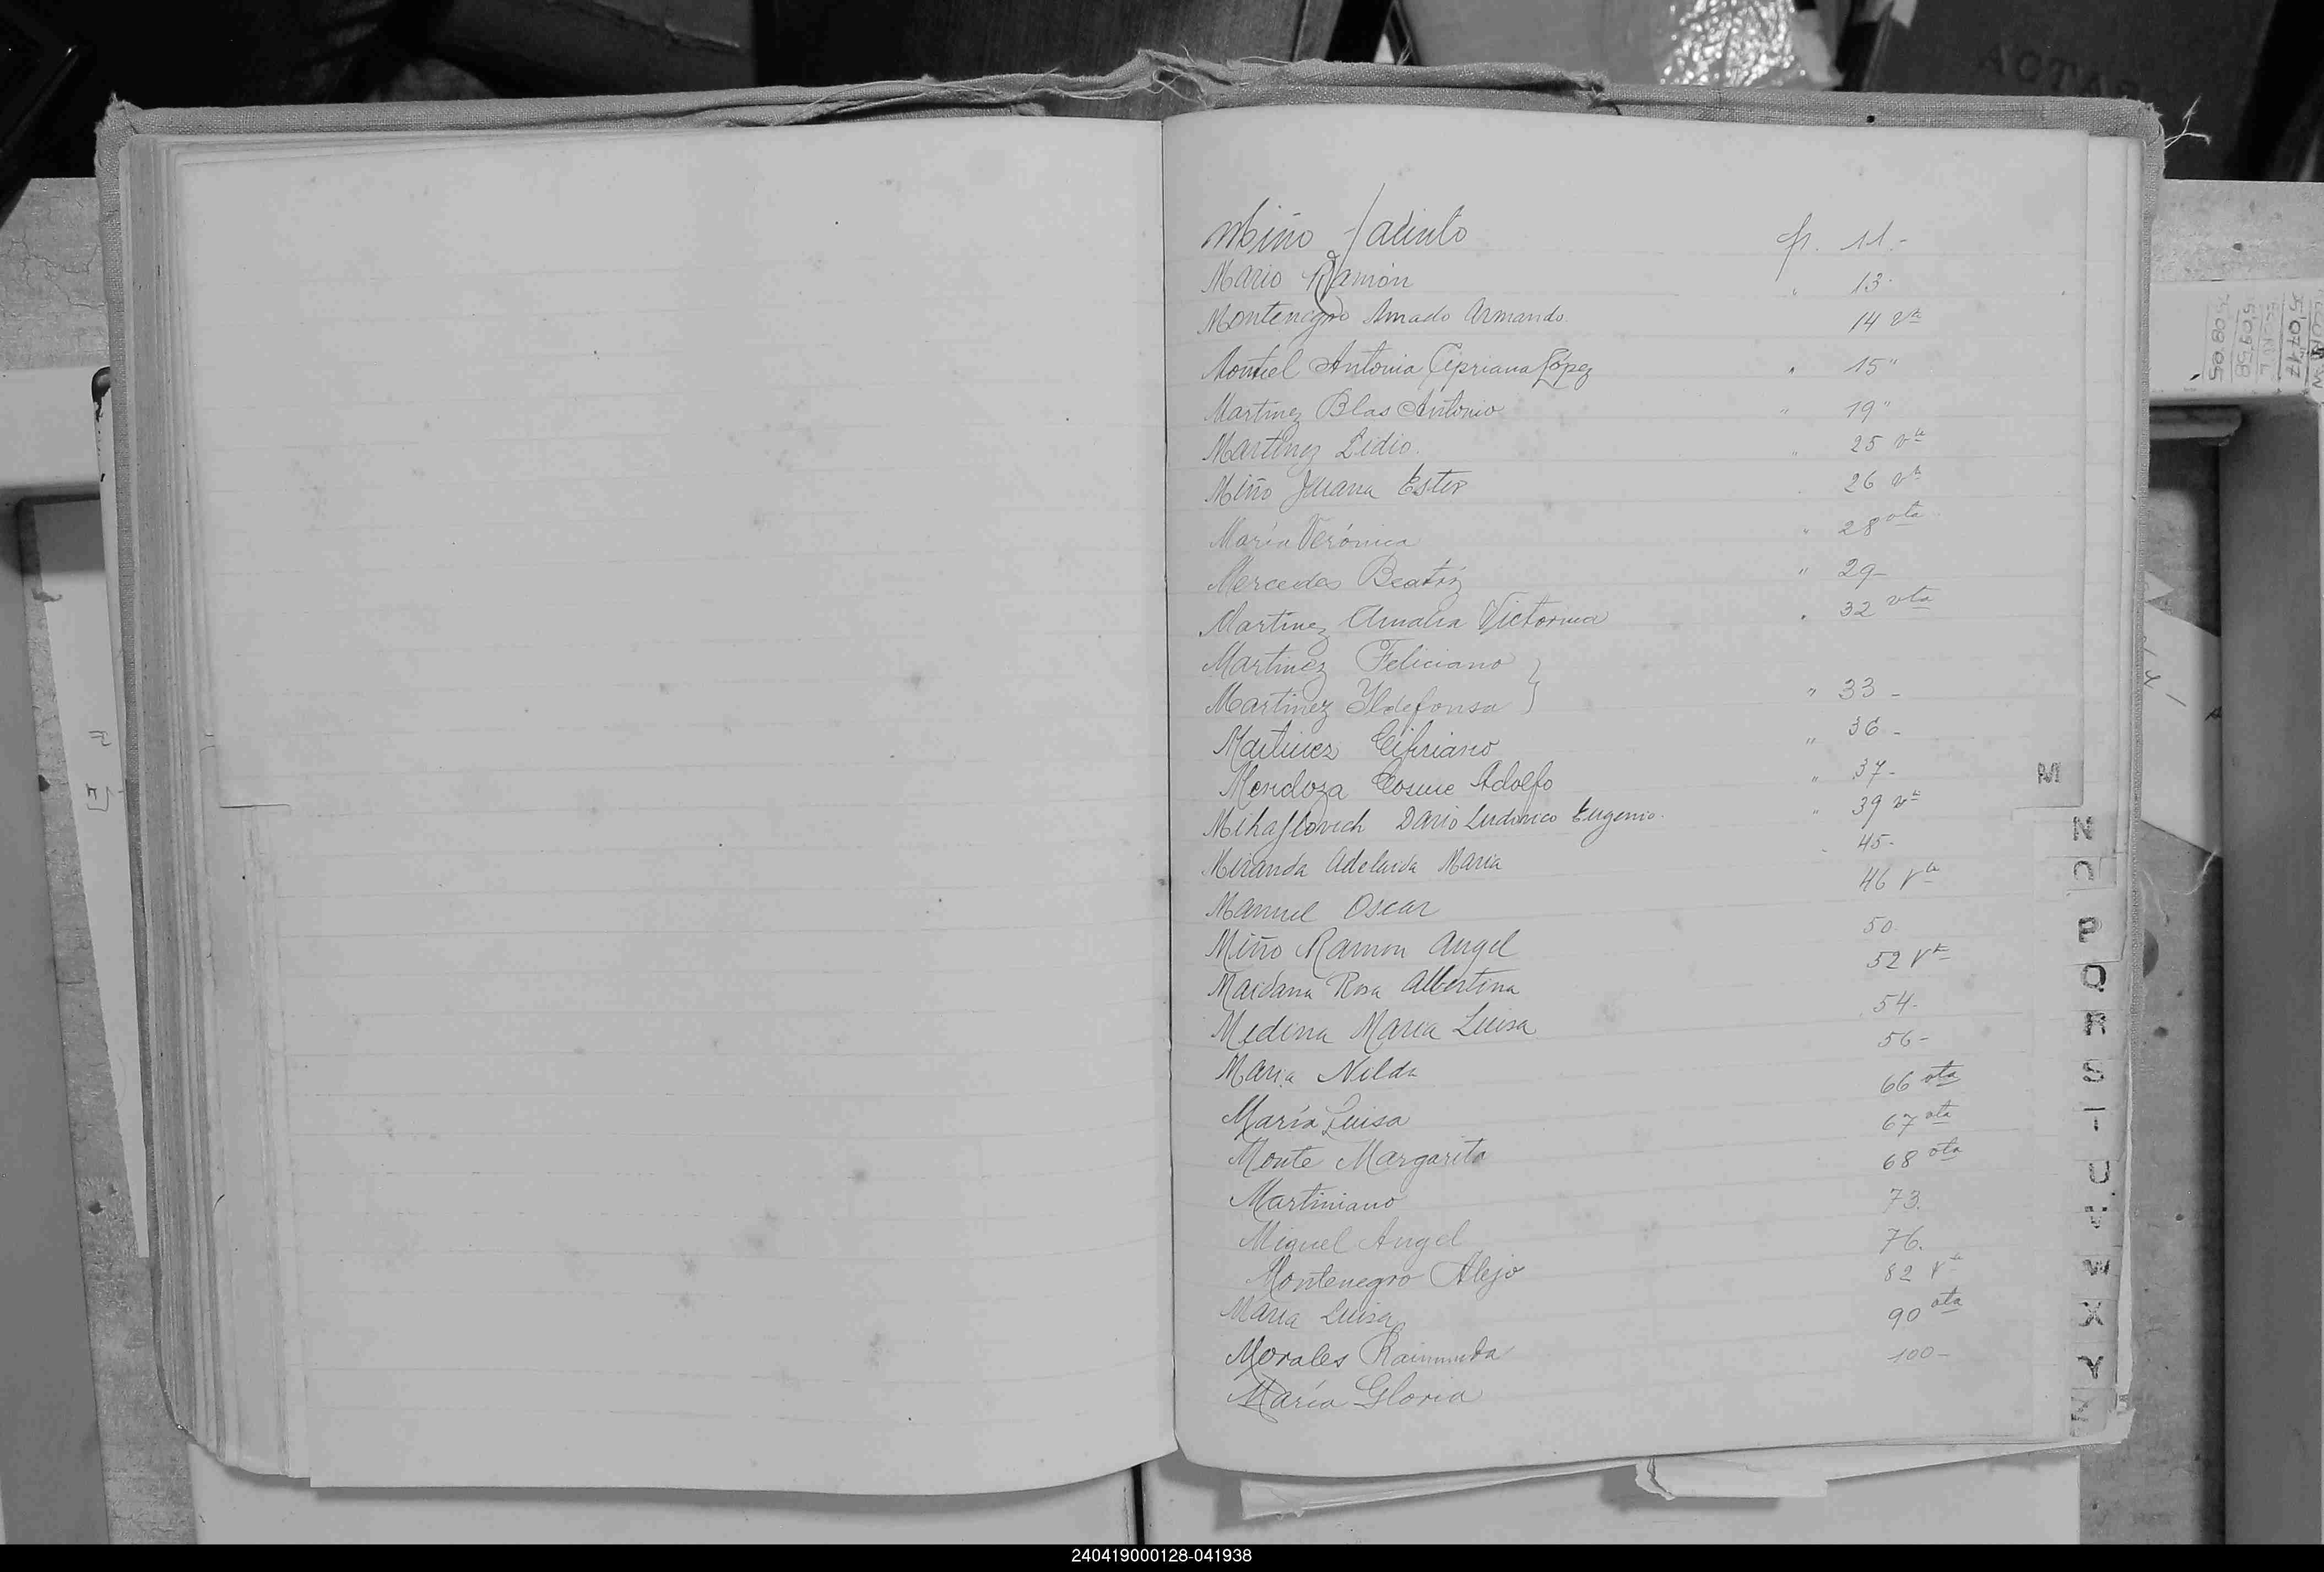 Miño Jacinto fs. 11.-
Mario Ramón " 13.
Montenegro Amado Armando. 14 vta
Montiel Antonia Cipriana López " 15"
Martínez Blas Antonio " 19"
Martínez Lidio. " 25 vta
Miño Juana Ester 26 vta
María Verónica " 28 vta
Mercedes Beatríz " 29-
Martínez Amalia Victorina " 32 vta
Martínez Feliciano }
Martínez Yldefonsa } " 33 -
Martinez Cipriano " 36 -
Mendoza Cosme Adolfo " 37-
Mihaflovich Dario Ludovico Eugenio. " 39 vta
Miranda Adelaida Maria 45-
Manuel Oscar 46 Vta
Miño Ramon Angel 50.
Maidana Rosa Albertina 52 Vta
Medina Maria Luisa 54-
Maria Nilda 56-
María Luisa 66 vta
Monte Margarita 67 vta
Martiniano 68 vta
Miguel Angel 73.
Montenegro Alejo 76.
Maria Luisa 82 Vta
Morales Raimunda 90 vta
María Gloria 100-
M
N
O
P
Q
R
S
T
U
V
W
X
Y
Z
240419000128-041938